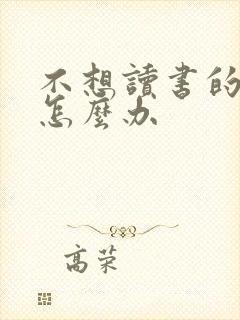 不想讀書的
怎麼办
高荣